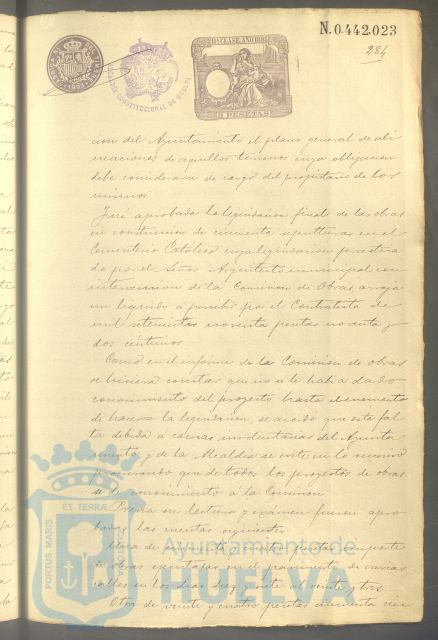 N.0.442.023
234
11ª CLASE. AÑO 1901
PESETAS
CONSTITUCIONAL DE HUELVA
cion del Ayuntamiento el plano general de ali
neaciones de aquellos terrenos cuya obligacion
debe considerarse de cargo del propietario de los
mismos
Fué aprobada la liquidacion final de las obras
en construccion de cincuenta sepulturas en el
Cementerio Católico cuya liquidacion practica
da por el Señor Arquitecto municipal con
intervencion de la Comision de Obras, arroja
un liquido á percibir por el Contratista de
mil setecientas noventa pesetas noventa y
dos céntimos
Como en el informe de la Comision de obras
se hiciera constar que no se le habia dado
conocimiento del proyecto hasta el momento
de hacerse la liquidacion, se acordó que esta fal
ta debida á causas involuntarias del Ayunta
miento y de la Alcaldia se evite en lo sucesivo
procurando que de todos los proyectos de obras
se dé conocimiento á la Comision
Previa su lectura y exámen fueron apro
badas las cuentas siguientes
Una de pesetas importe
de obras ejecutadas en el pavimento de varias
calles en los dias diez y siete al veinte y tres
Otra de veinte y cuatro pesetas cincuenta cén
PORTUS MARIS ET TERRAE CUSTODIA
Ayuntamiento de
HUELVA